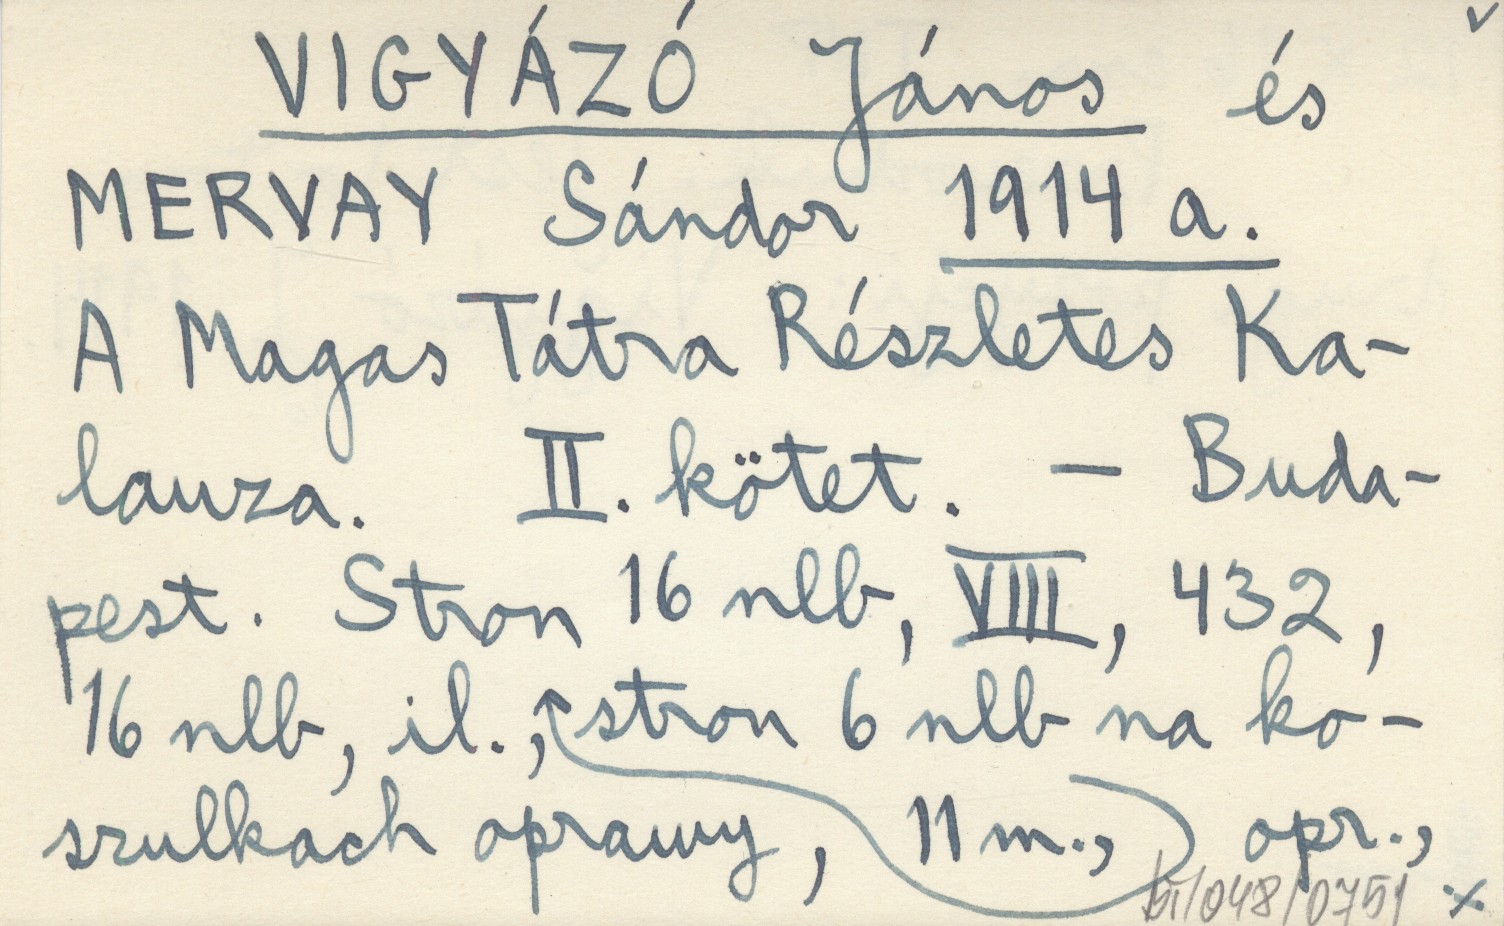 VIGYÁZÓ János és
MERVAY Sándor 1914 a.
A Magas Tátra Részletes Ka-
lauza. II. kötet. — Buda-
pest. Stron 16 nlb, VIII, 432,
16 nlb, il., stron 6 nlb na ko-
szulkach oprawy, 11 m., opr.,
bi/048/0751